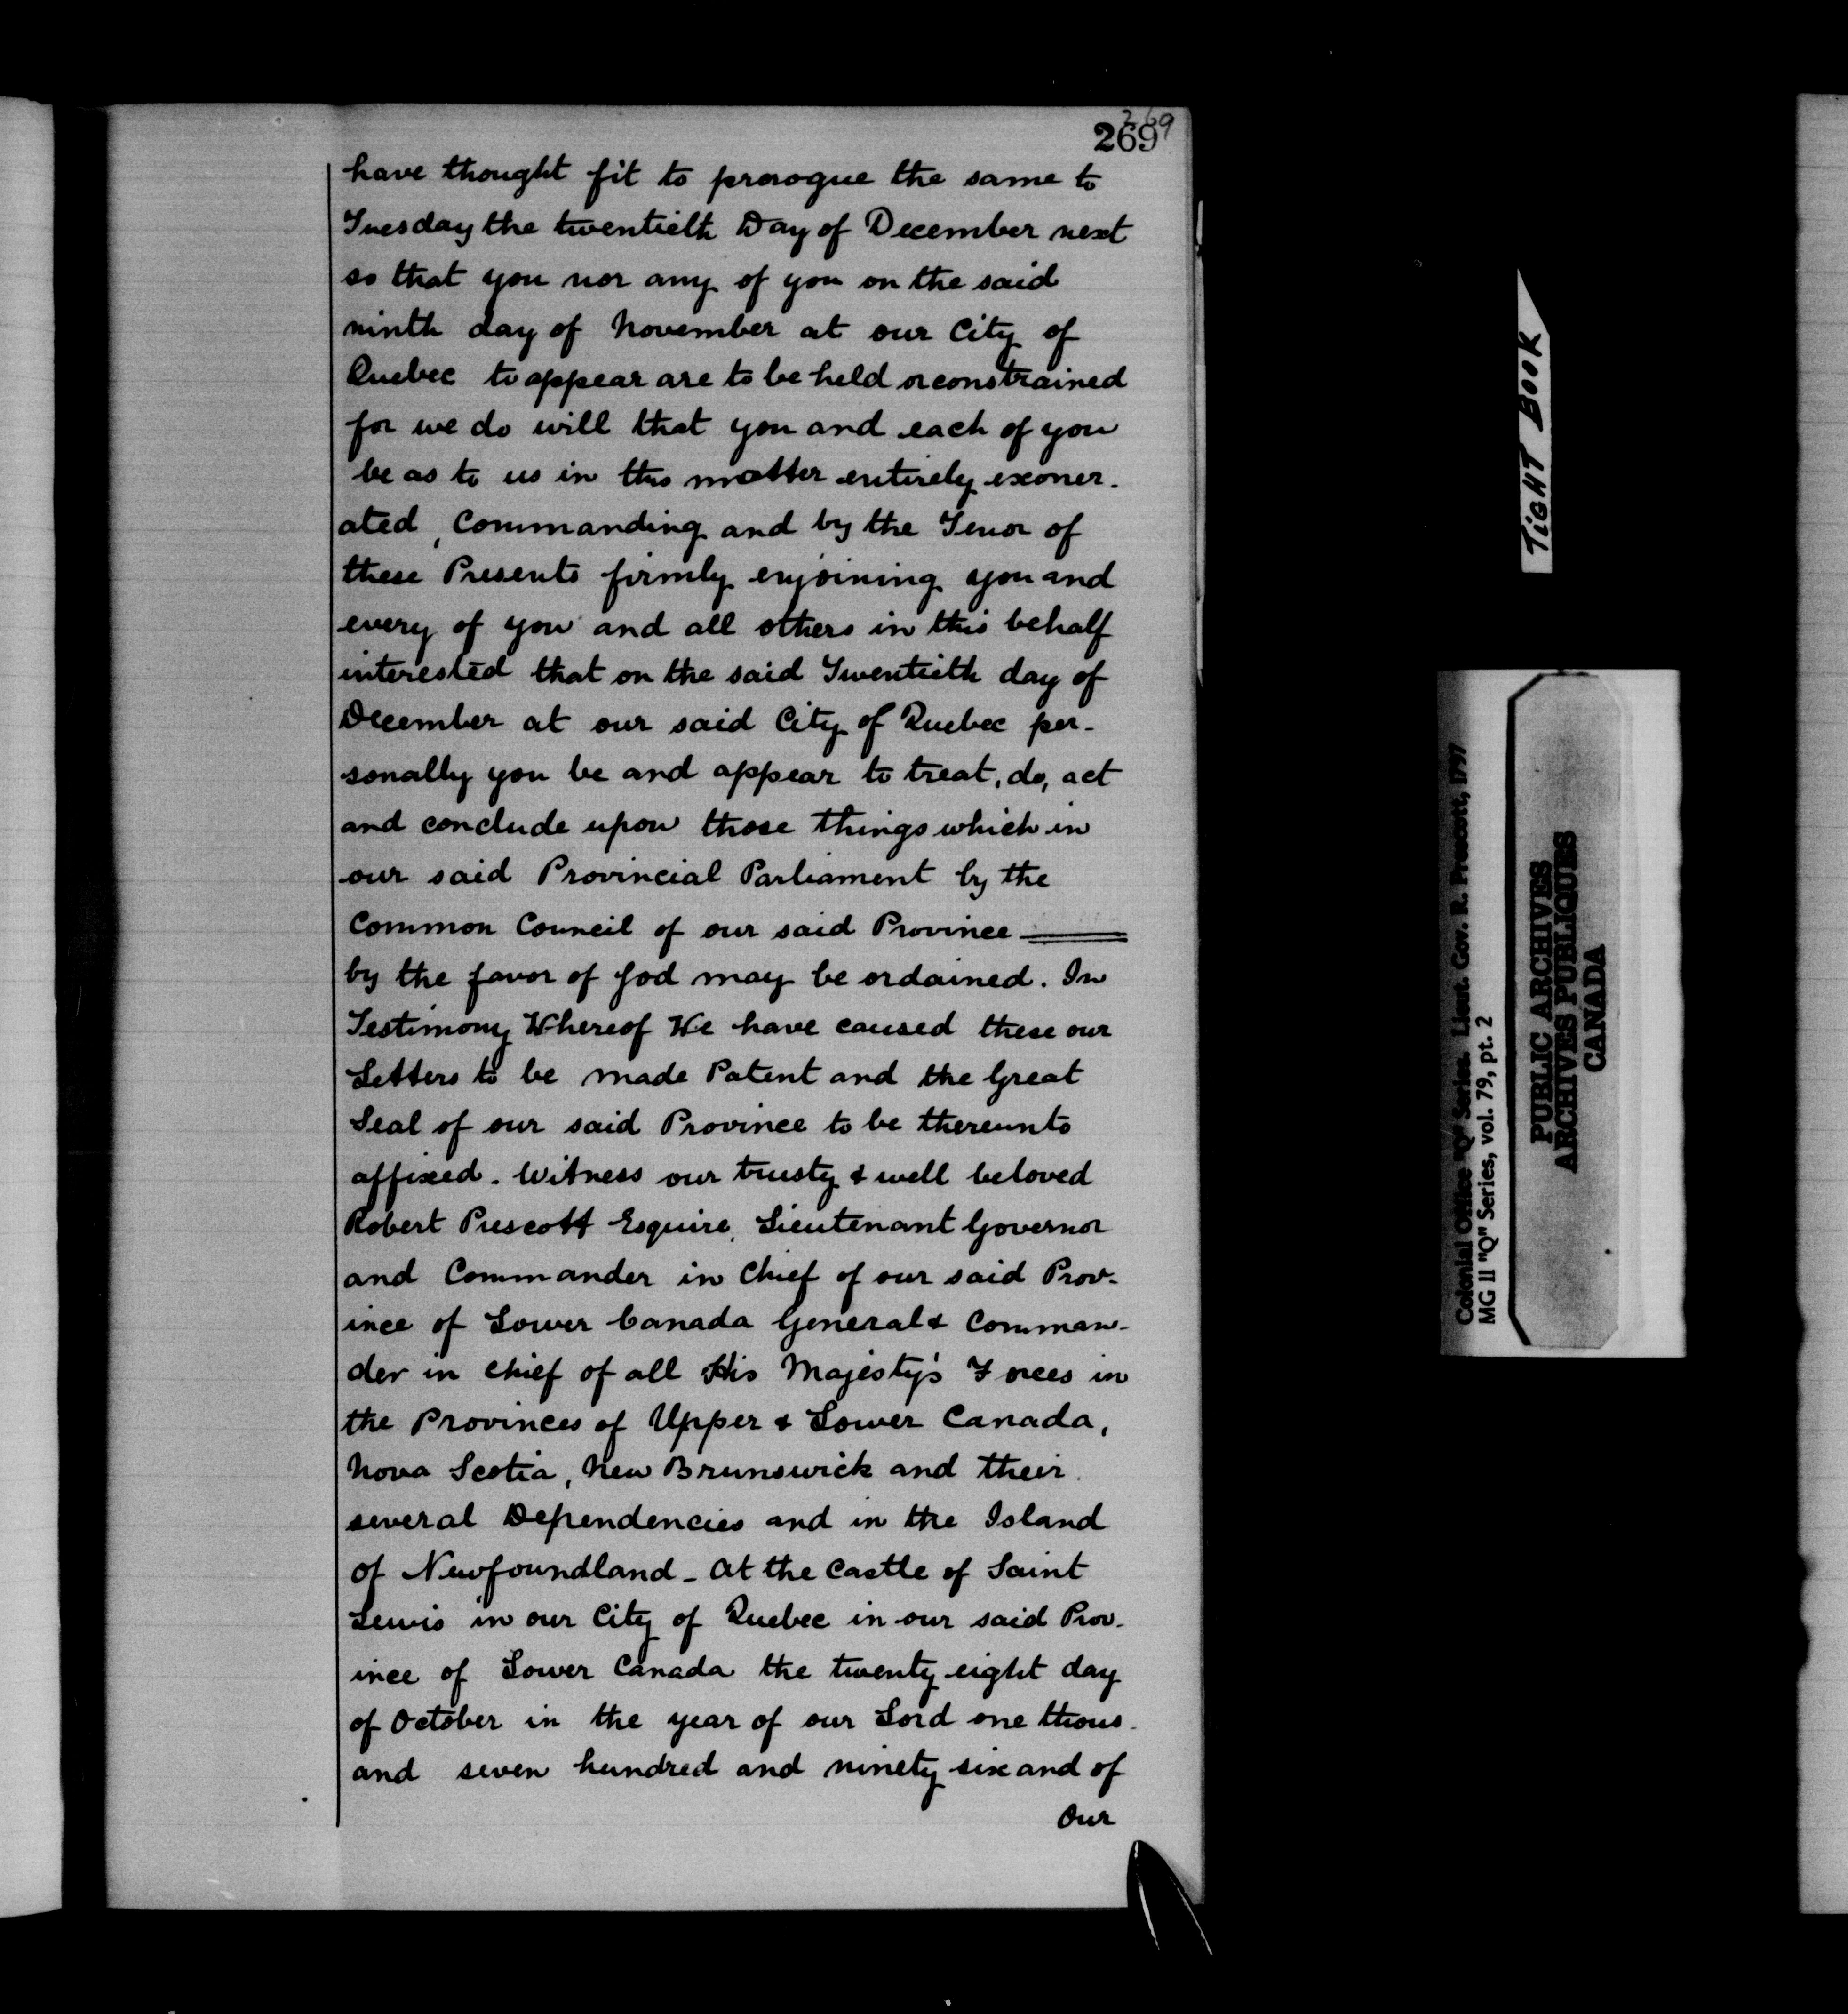 269
269
have thought fit to prorogue the same to
Tuesday the twentieth Day of December next
so that you nor any of you on the said
ninth day of November at our City of
Quebec to appear are to be held or constrained
for we do will that you and each of you
be as to us in this matter entirely exoner-
ated, Commanding and by the Tenor of
these Presents firmly enjoining you and
every of you and all others in this behalf
interested that on the said Twentieth day of
December at our said City of Quebec per-
sonally you be and appear to treat, do, act
and conclude upon those things which in
our said Provincial Parliament by the
Common Council of our said Province
by the favor of God may be ordained. In
Testimony Whereof We have caused these our
Letters to be made Patent and the Great
Seal of our said Province to be thereunto
affixed. Witness our trusty & well beloved
Robert Prescott Esquire, Lieutenant Governor
and Commander in Chief of our said Prov-
ince of Lower Canada General & Comman-
der in chief of all His Majesty's Forces in
the Provinces of Upper & Lower Canada,
Nova Scotia, New Brunswick and their
several Dependencies and in the Island
of Newfoundland - At the Castle of Saint
Lewis in our City of Quebec in our said Prov-
ince of Lower Canada the twenty eight day
of October in the year of our Lord one thous-
and seven hundred and ninety six and of
Our
TIGHT BOOK
Colonial Office "Q" Series. Lieut. Gov. R. Prescott, 1797
MG 11 "Q" Series, vol. 79, pt. 2
PUBLIC ARCHIVES
ARCHIVES PUBLIQUES
CANADA